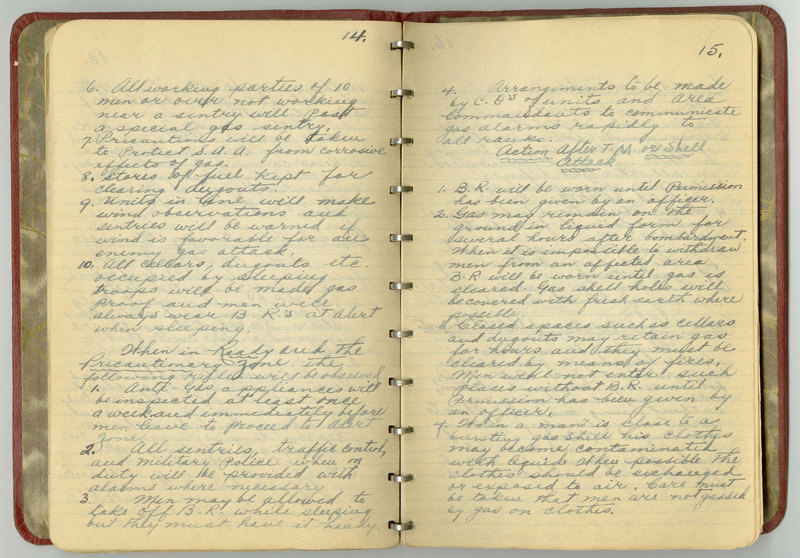 14.
6. All working parties of 10
men or over not working
near a sentry will Post
a special gas sentry.
7. Precautions will be taken
to Protect S.A.A. from corrosive
effects of gas.
8. Stores of fuel kept for
clearing dugouts.
9. Units in line will make
wind observations and
sentries will be warned if
wind is favorable for an
enemy gas attack.
10. All cellars, dugouts etc.
occupied by sleeping
troops will be made gas
Proof and men will
always wear B R's at Alert
when sleeping.
When in Ready and the
Precautionary Zone the
following rules will be observed
1. Anti-Gas appliances will
be inspected at least once
a week and immediately before
men leave to proceed to Alert
Zone.
2. All sentries, traffic control,
and military Police when on
duty will be Provided with
alarms where necessary
3. Men may be allowed to
take off B.R. while sleeping
but they must have it handy
15.
4. Arrangements to be made
by C.O's of units and Area
Commandants to communicate
gas alarms rapidly to
all ranks.
Action After T.M. or Shell
Attack
1. B.R. will be worn until Permission
has been given by an officer.
2. Gas may remain on the
ground in liquid form for
several hours after bombardment.
When it is impossible to withdraw
men from an affected area
B.R will be worn until gas is
cleared. Gas shell holes will
be covered with fresh earth where
possible.
3. Closed spaces such as cellars
and dugouts may retain gas
for hours and they must be
cleared by means of fires.
Men will not enter such
places without B.R. until
Permission has been given by
an officer.
4. When a man is close to a
bursting gas shell his clothes
may become contaminated
with liquid. When possible the
clothes should be exchanged
or exposed to air. Care must
be taken that men are not gassed
by gas on clothes.